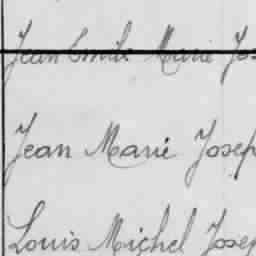 Jean Emile Marie Jos
Jean Marie Josep
Louis Michel Josep